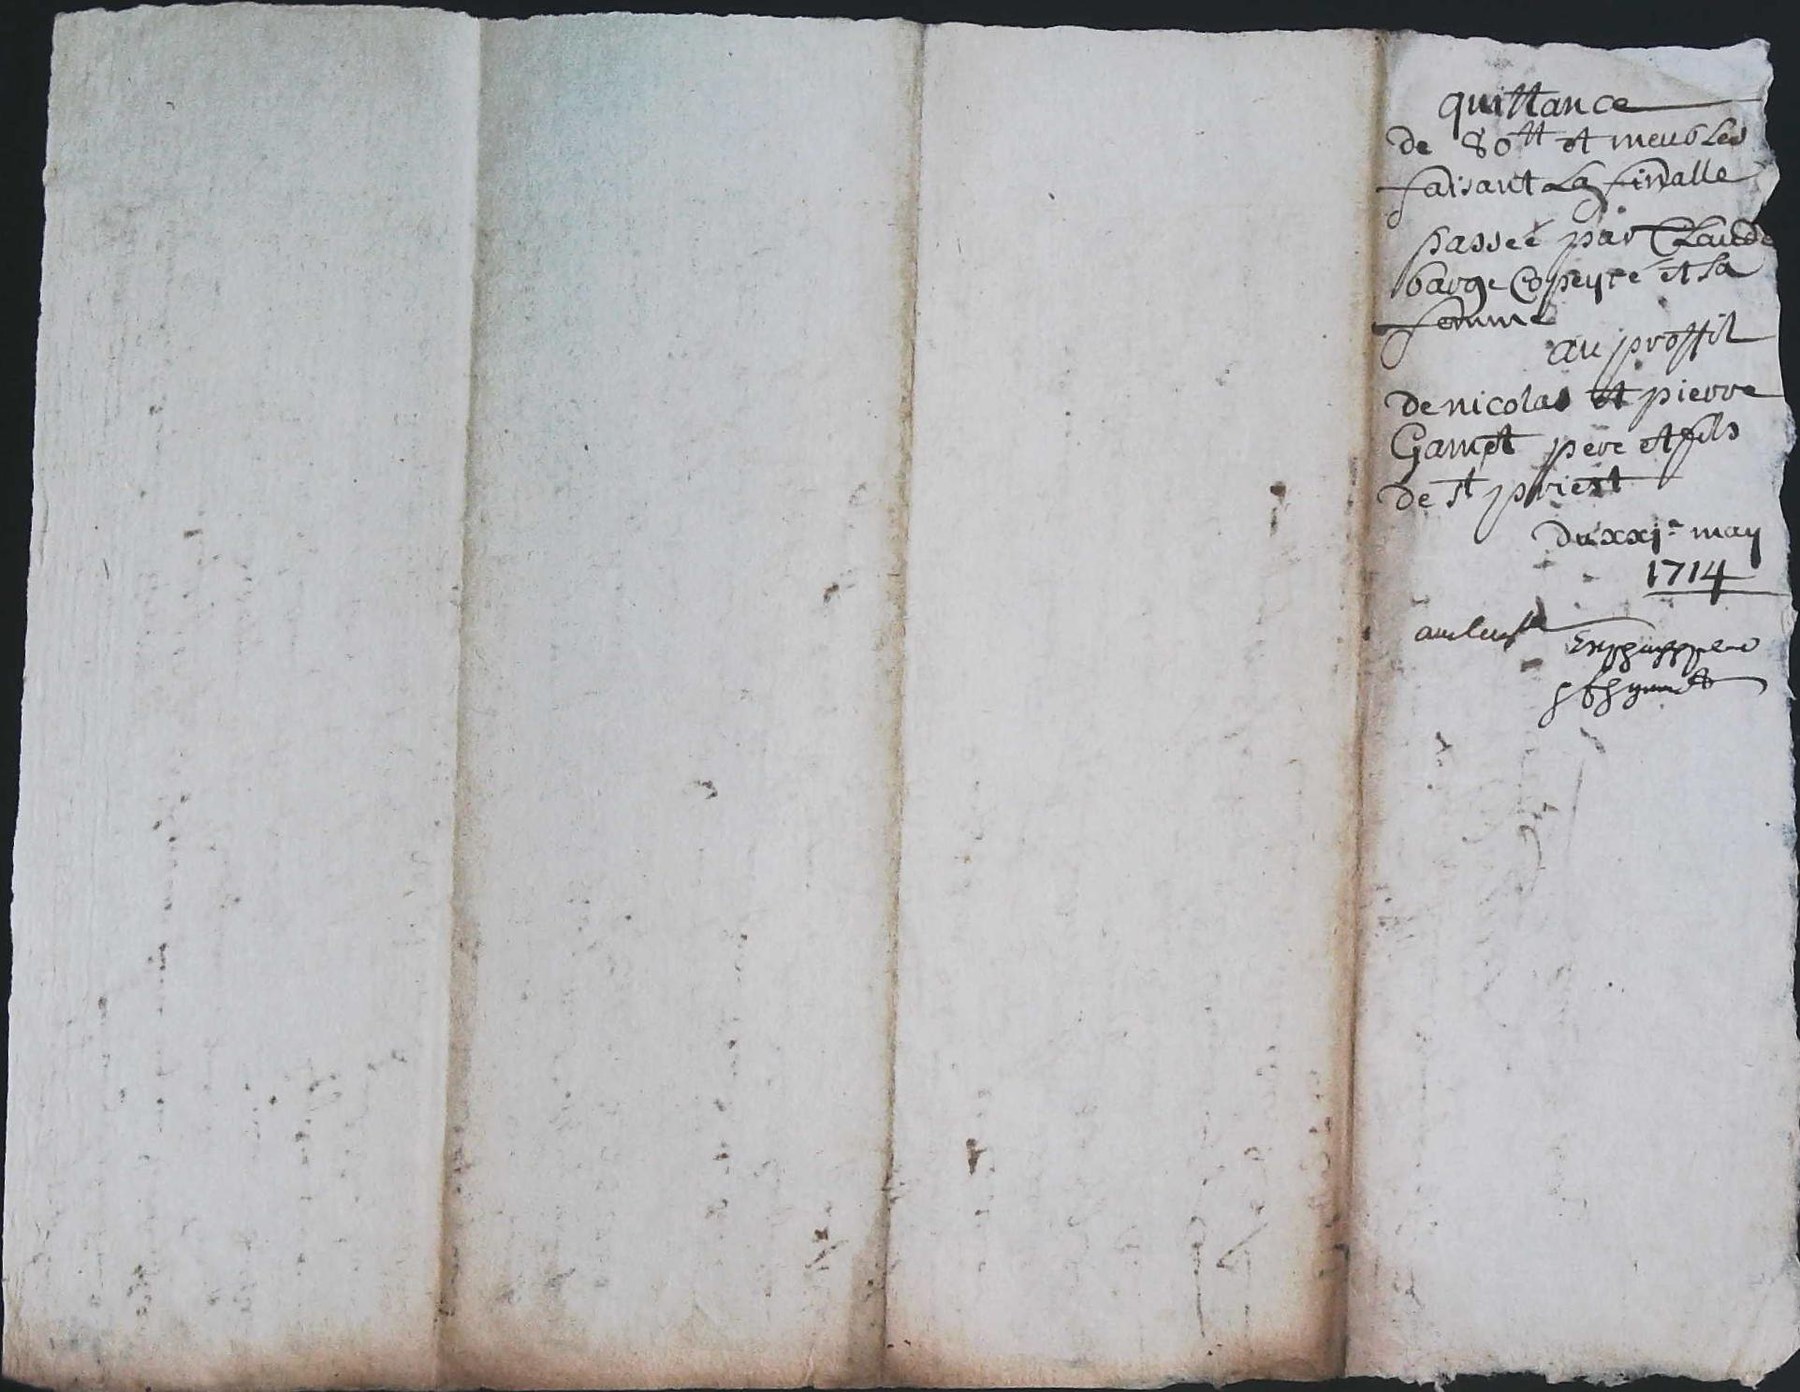 quittance
de 80tt et meubles
faisant La finalle
passée par Claude
barge Copeyre et sa
femme
au proffit
de nicolas et pierre
Gamet pere et fils
de st priest
du xxje may
1714